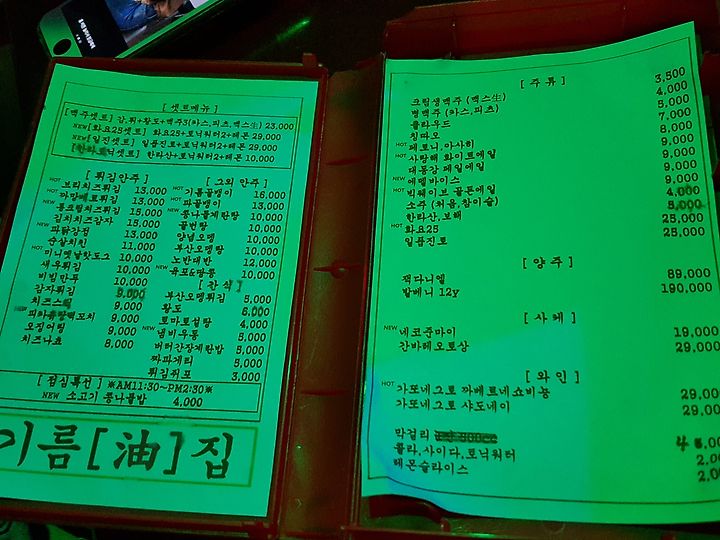 [ 셋트메뉴 ]
[맥주셋트] 감.튀+황도+맥주3(카스,피츠,맥스生) 23,000
NEW[화요25셋트] 화요25+토닉워터2+레몬 29,000
NEW[일진셋트] 일품진로+토닉워터2+레몬 29,000
[한라토닉셋트] 한라산+토닉워터2+레몬 10,000
[ 튀김안주 ]
HOT 브리치즈튀김 13,000
HOT 까망베르튀김 13,000
NEW 콘크림치즈튀김 15,000
김치치즈감자 15,000
NEW 파닭강정 13,000
순살치킨 11,000
HOT 미니옛날핫도그 10,000
새우튀김 10,000
비빔만두 10,000
감자튀김 9,000
치즈스틱 9,000
NEW 9,000
오징어링 9,000
치즈나쵸 8,000
[ 그외 안주 ]
HOT 기름골뱅이 16,000
HOT 파골뱅이 13,000
NEW 콩나물계란탕 10,000
꿀번탕 10,000
양념오뎅 10,000
부산오뎅탕 10,000
노반대반 12,000
NEW 육포&땅콩 10,000
[ 간 식 ]
부산오뎅튀김 5,000
황도 8,000
NEW 토마토설탕 4,000
NEW 냄비우동 5,000
버터간장계란밥 5,000
짜파게티 5,000
튀김쥐포 3,000
[ 점심특선 ] ※AM11:30~PM2:30※
NEW 소고기 콩나물밥 4,000
기름[油]집
[ 주 류 ]
크림생맥주 (맥스生) 3,500
병맥주 (카스,피츠) 4,000
클라우드 5,000
칭따오 7,000
HOT 페로니,아사히 8,000
HOT 사랑해 화이트에일 9,000
대동강 페일에일 9,000
NEW 에델바이스 9,000
HOT 빅웨이브 골든에일 9,000
소주 (처음,참이슬) 4,000
한라산,보해 5,000
HOT 화요25 25,000
일품진로 25,000
[ 양 주 ]
잭다니엘 89,000
발베니 12y 190,000
[ 사 케 ]
NEW 네코준마이 19,000
간바레오토상 29,000
[ 와 인 ]
HOT 가또네그로 까베르네쇼비뇽 29,000
가또네그로 샤도네이 29,000
막걸리
콜라,사이다,토닉워터 2,0
레몬슬라이스 2,0